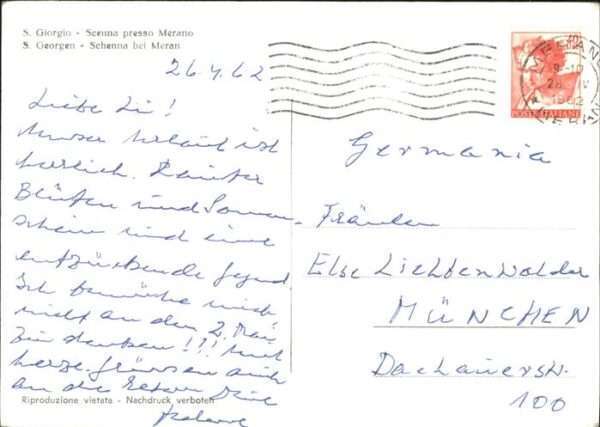 S. Giorgio - Scenna presso Merano
S. Georgen - Schenna bei Meran
26.4.62
Liebe Li!
Unser Urlaub ist
herrlich. Lauter
Blüten und Sonnen-
schein und eine
entzückende Gegend
Ich bemühe mich
nicht an den 2. Mai
zu denken!!! Mit
herzl. Grüssen auch
an die Eltern Deine
Riproduzione vietata - Nachdruck verboten
POSTE ITALIANE
MERANO
1962
Germania
Fräulein
Else Lichtenwalder
MÜNCHEN
Dachauerstr.
100